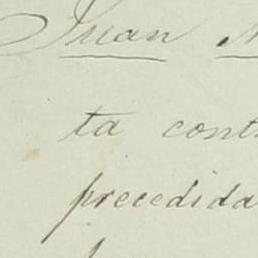 Juan
ta cont
precedida